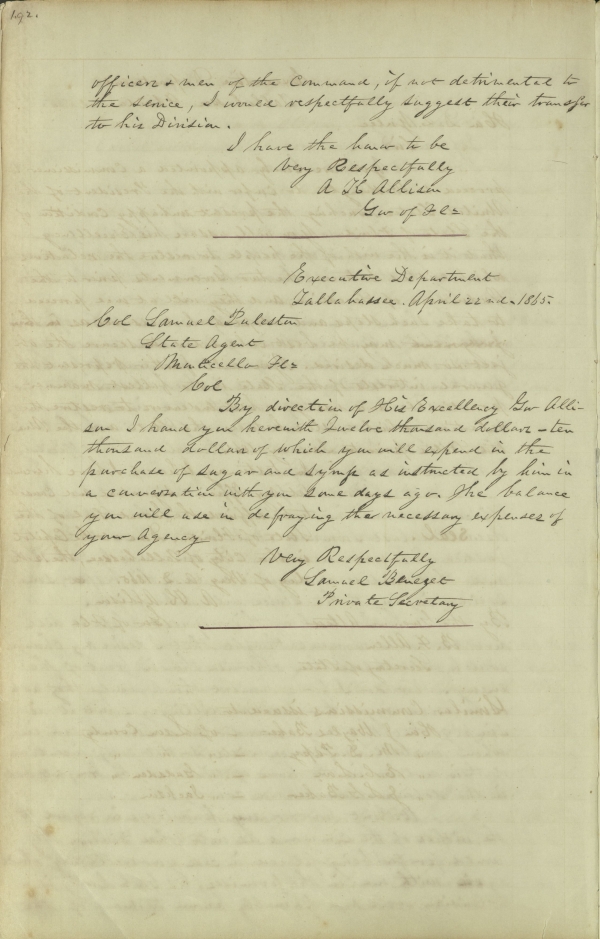 192.
officers & men of the Command, if not detrimental to
the service, I would respectfully suggest their transfer
to his Division.
I have the honor to be
Very Respectfully
A K Allison
Gov of Fla
Executive Department
Tallahassee. April 22nd. 1865.
Col Samuel Puleston
State Agent
Monticello Fla
Col
By direction of His Excellency Gov Alli-
son I hand you herewith Twelve thousand dollars - ten
thousand dollars of which you will expend in the
purchase of sugar and syrup as instructed by him in
a conversation with you some days ago. The balance
you will use in defraying the necessary expenses of
your Agency
Very Respectfully
Samuel Benezet
Private Secretary